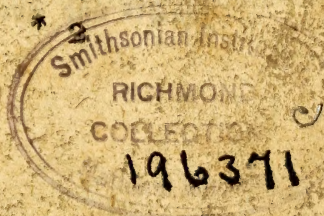 * 2
Smithsonian Insti
RICHMOND
COLLECTION
196371